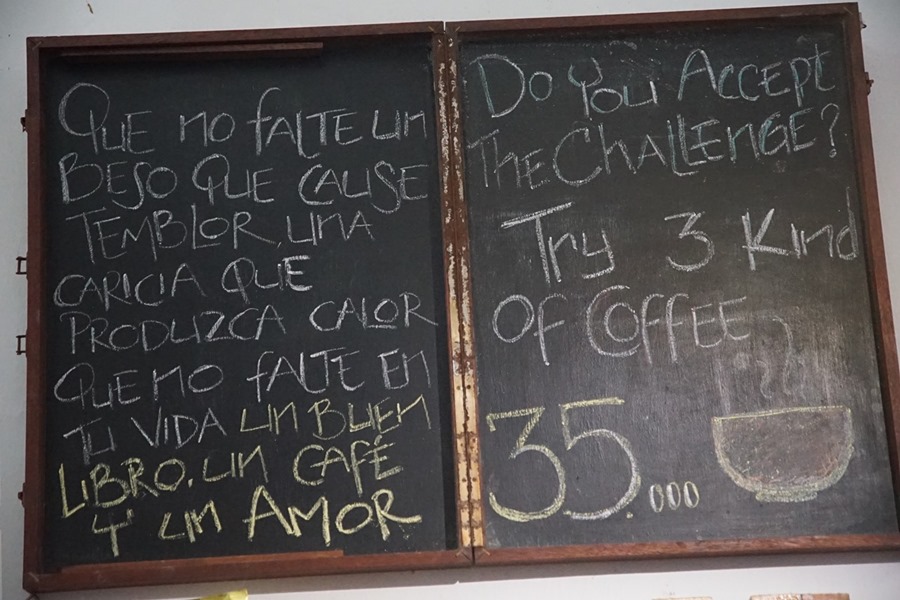 QUE NO FALTE UN
BESO QUE CAUSE
TEMBLOR, UNA
CARICIA QUE
PRODUZCA CALOR
QUE NO FALTE EN
TU VIDA UN BUEN
LIBRO, UN CAFÉ
Y UN AMOR
Do You Accept
The Challenge?
Try 3 Kind
Of Coffee
35.000